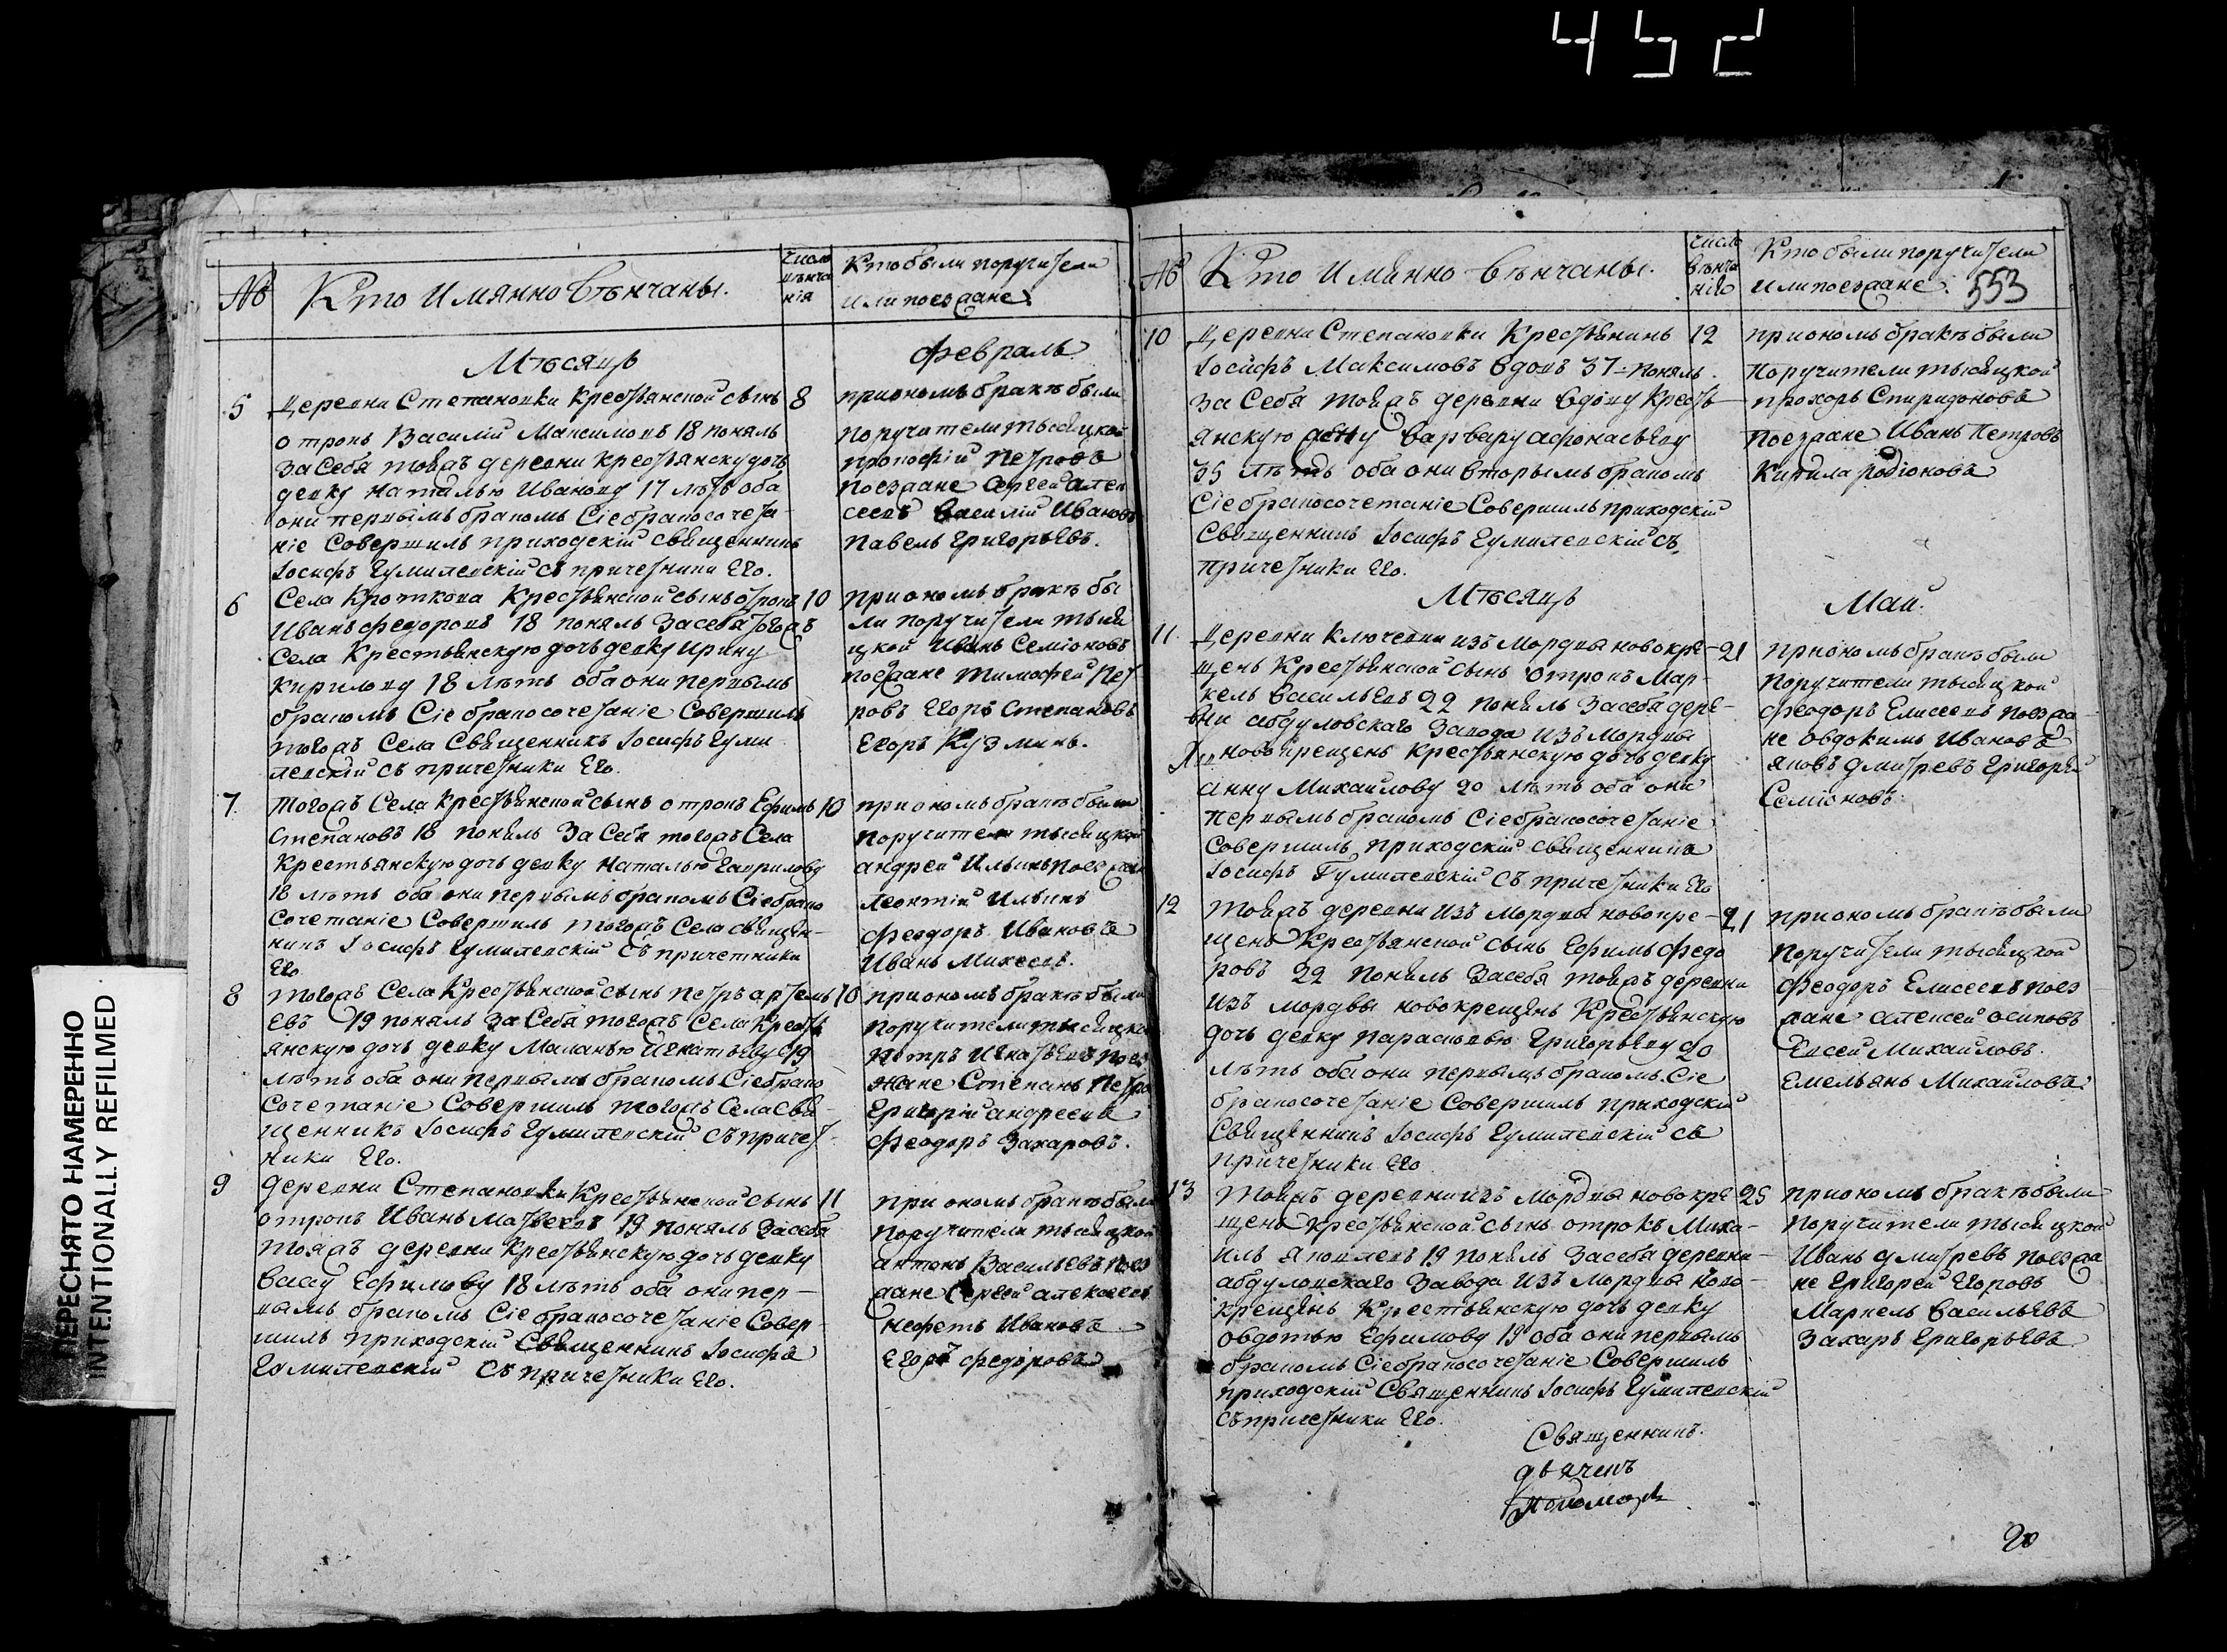 452
ПЕРЕСНЯТО НАМЕРЕННО
INTENTIONALLY REFILMED
№
Кто имянно вѣнчаны.
Число вѣнча нія
Кто были поручители
или поезжане.
Мѣсяцъ
Февраль
5
Деревни Степановки крестьянской сынъ
отрокъ Василій Максимовъ 18 понялъ
за себя тояжъ деревни крестьянску дочь
девку Наталью Иванову 17 лѣтъ оба
они первымъ бракомъ Сіе бракосочета-
ніе Совершилъ приходскій священникъ
Іосифъ Гумилевскій съ причетники Его.
8
при ономъ бракѣ были
поручители тысяцкой
прокофій Петровъ
поезжане Сергей Алек
сеевъ Василій Ивановъ
Павелъ Григорьевъ.
6
Села Кроткова Крестьянской сынъ отрокъ
Иванъ Федоровъ 18 понялъ за себя тогожъ
Села Крестьянскую дочь девку Ирину
Кирилову 18 лѣтъ оба они первымъ
бракомъ Сіе бракосочетаніе Совершилъ
тогожъ Села Священникъ Іосифъ Гуми
левскій съ причетники Его.
10
при ономъ бракѣ бы
ли поручители тыся
цкой Иванъ Семіоновъ
поезжане Тимофей Пет
ровъ Егоръ Степановъ
Егоръ Кузминъ.
7.
Тогожъ Села Крестьянской сынъ отрокъ Ефимъ
Степановъ 18 понялъ За Себя тогожъ Села
Крестьянскую дочь девку Наталью Гаврилову
18 лѣтъ оба они первымъ бракомъ Сіе брако
сочетаніе Совершилъ тогожъ Села священ-
никъ Іосифъ Гумилевскій съ причетники
Его
10
при ономъ бракѣ были
поручители тысяцкой
андрей Ильинъ поезжан
Леонтій Ильинъ
Феодоръ Ивановъ
Иванъ Михеевъ.
8
Тогожъ Села Крестьянской сынъ Петръ артемь
евъ 19 понялъ За Себя тогожъ Села Кресть
янскую дочь девку Маланью Игнатьеву 19
лѣтъ оба они первымъ бракомъ Сіе брако
сочетаніе Совершилъ тогожъ Села Свя-
щенникъ Іосифъ Гумилевскій съ причет-
ники Его.
10
при ономъ бракѣ были
поручители тысяцко
Петръ Игнатьевъ поез
жане Степанъ Петро
Григорій андреевъ
Феодоръ Захаровъ.
9
Деревни Степановки Крестьянской сынъ
отрокъ Иванъ Матвеевъ 19 понялъ За себя
тояжъ деревни Крестьянскую дочь девку
Васу Ефимову 18 лѣтъ оба они пер-
вымъ бракомъ Сіе бракосочетаніе Совер-
шилъ приходскій Священникъ Іосифъ
Гумилевскій съ причетники Его.
11
при ономъ бракѣ были
поручители тысяцкой
антонъ Васильевъ поез
жане Сергей алексеевъ
Нефетъ Ивановъ
Егоръ Федоровъ
№
Кто имянно вѣнчаны.
Число вѣнча нія
Кто были поручители
или поезжане.
553
10
Деревни Степановки Крестьянинъ
Іосифъ Максимовъ вдовъ 37 понялъ
за Себя тояжъ деревни вдову Кресть
янскую Варвару афонасьеву
35 лѣтъ оба они вторымъ бракомъ
Сіе бракосочетаніе Совершилъ приходскій
Священникъ Іосифъ Гумилевскій съ
причетники Его.
12
при ономъ бракѣ были
поручители тысяцкой
прохоръ Спиридоновъ
поезжане Иванъ Петровъ
Кирила Родіоновъ
Мѣсяцъ
Май.
11.
Деревни Ключевки изъ Мордвы новокре-
щенъ Крестьянской Сынъ отрокъ Мар-
келъ Васильевъ 22 понялъ За себя дере-
вни абдуловскаго Завода изъ Мордвы
новокрещенъ крестьянскую дочь девку
анну Михаилову 20 лѣтъ оба они
первымъ бракомъ Сіе бракосочетаніе
Совершилъ приходскій священникъ
Іосифъ Гумилевскій съ причетники Его
21
при ономъ бракѣ были
поручители тысяцкой
Феодоръ Елисеевъ поезжа
не Овдокимъ Ивановъ
Яковъ Дмитревъ Григорей
Семіоновъ.
12
Тояжъ деревни изъ мордвы новокре-
щенъ Крестьянской сынъ Ефимъ Федо
ровъ 22 понялъ За себя тояжъ деревни
изъ мордвы новокрещенъ Крестьянскую
дочь девку Парасковью Григорьеву 20
лѣтъ оба они первымъ бракомъ. Сіе
бракосочетаніе Совершилъ приходскій
Священникъ Іосифъ Гумилевскій съ
причетники Его
21
при ономъ бракѣ были
поручители тысяцкой
Феодоръ Елисеевъ поез
жане алексей осиповъ
Елсей Михаиловъ.
Емельянъ Михаиловъ
13
Тояжъ деревни изъ Мордвы новокре-
щенъ крестьянской сынъ отрокъ Миха-
илъ Яковлевъ 19 понялъ За себя деревни
абдуловскаго Завода изъ Мордвы ново-
крещенъ Крестьянскую дочь девку
овдотью Ефимову 19 оба они первымъ
бракомъ Сіе бракосочетаніе Совершилъ
приходскій Священникъ Іосифъ Гумилевскій
съ причетники Его.
25
при ономъ бракѣ были
поручители тысяцкой
Иванъ Дмитревъ поезжа
не Григорей Егоровъ
Маркелъ Васильевъ
Захаръ Григорьевъ
Священникъ.
дьячекъ
пономарь
20